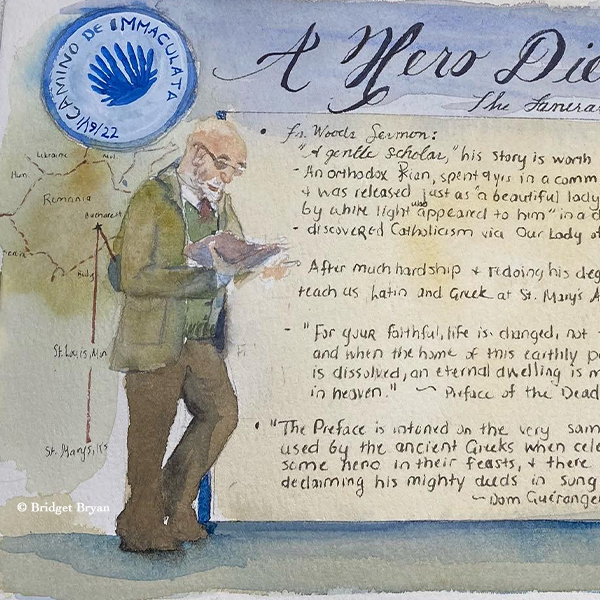 CAMINO DE IMMACULATA
V/9/22
A Hero Die
The Funera
Ukraine
Mol
Hun
Romania
Bucharest
Bulg
St. Louis, Mo
St. Marys, KS
• Fr. Woods Sermon:
"A gentle scholar," his story is worth
An orthodox Rian, spent 9 yrs in a comm
& was released just as "a beautiful lady
by white light was appeared to him" in a d
- discovered Catholicism via Our Lady of
After much hardship & redoing his deg
teach us Latin and Greek at St. Mary's A
- "For your faithful, life is changed, not
and when the home of this earthly
is dissolved, an eternal dwelling is m
in heaven." ~ Preface of the Dead
• "The Preface is intoned on the very sam
used by the ancient Greeks when cele
some hero in their feasts, & there
declaiming his mighty deeds in sung
~ Dom Gueranger
© Bridget Bryan